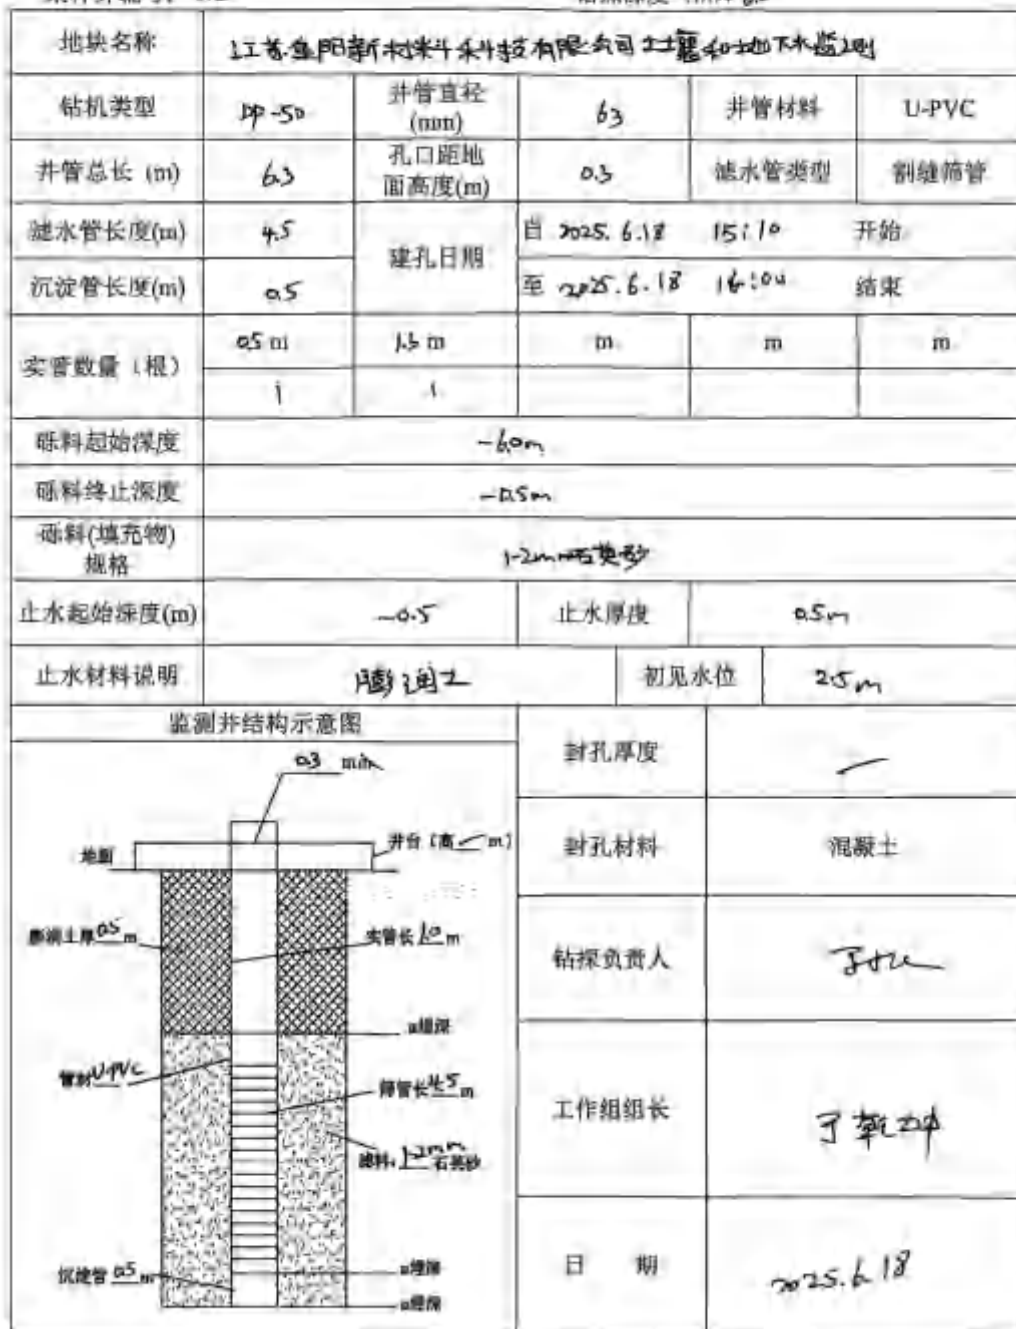 地块名称 江苏 阳新材料科技有限公司土壤和地下水监测
钻机类型 DP-50 井管直径 (mm) 63 井管材料 U-PVC
井管总长 (m) 6.3 孔口距地面高度(m) 0.3 滤水管类型 割缝筛管
滤水管长度(m) 4.5 建孔日期 自 2025.6.18 15:10 开始
沉淀管长度(m) 0.5 至 2025.6.18 16:04 结束
实管数量(根) 0.5 m 1.3 m m m m
1 1
砾料起始深度 -6.0m
砾料终止深度 -0.5m
砾料(填充物)规格 1-2mm石英砂
止水起始深度(m) -0.5 止水厚度 0.5m
止水材料说明 膨润土 初见水位 2.5m
监测井结构示意图
0.3 m
地面
井台(高 — m)
膨润土厚 0.5 m
实管长 1.0 m
m埋深
管材 U-PVC
筛管长 4.5 m
滤料: 1-2mm石英砂
沉淀管 0.5 m
m埋深
m埋深
封孔厚度 —
封孔材料 混凝土
钻探负责人
工作组组长
日 期 2025.6.18